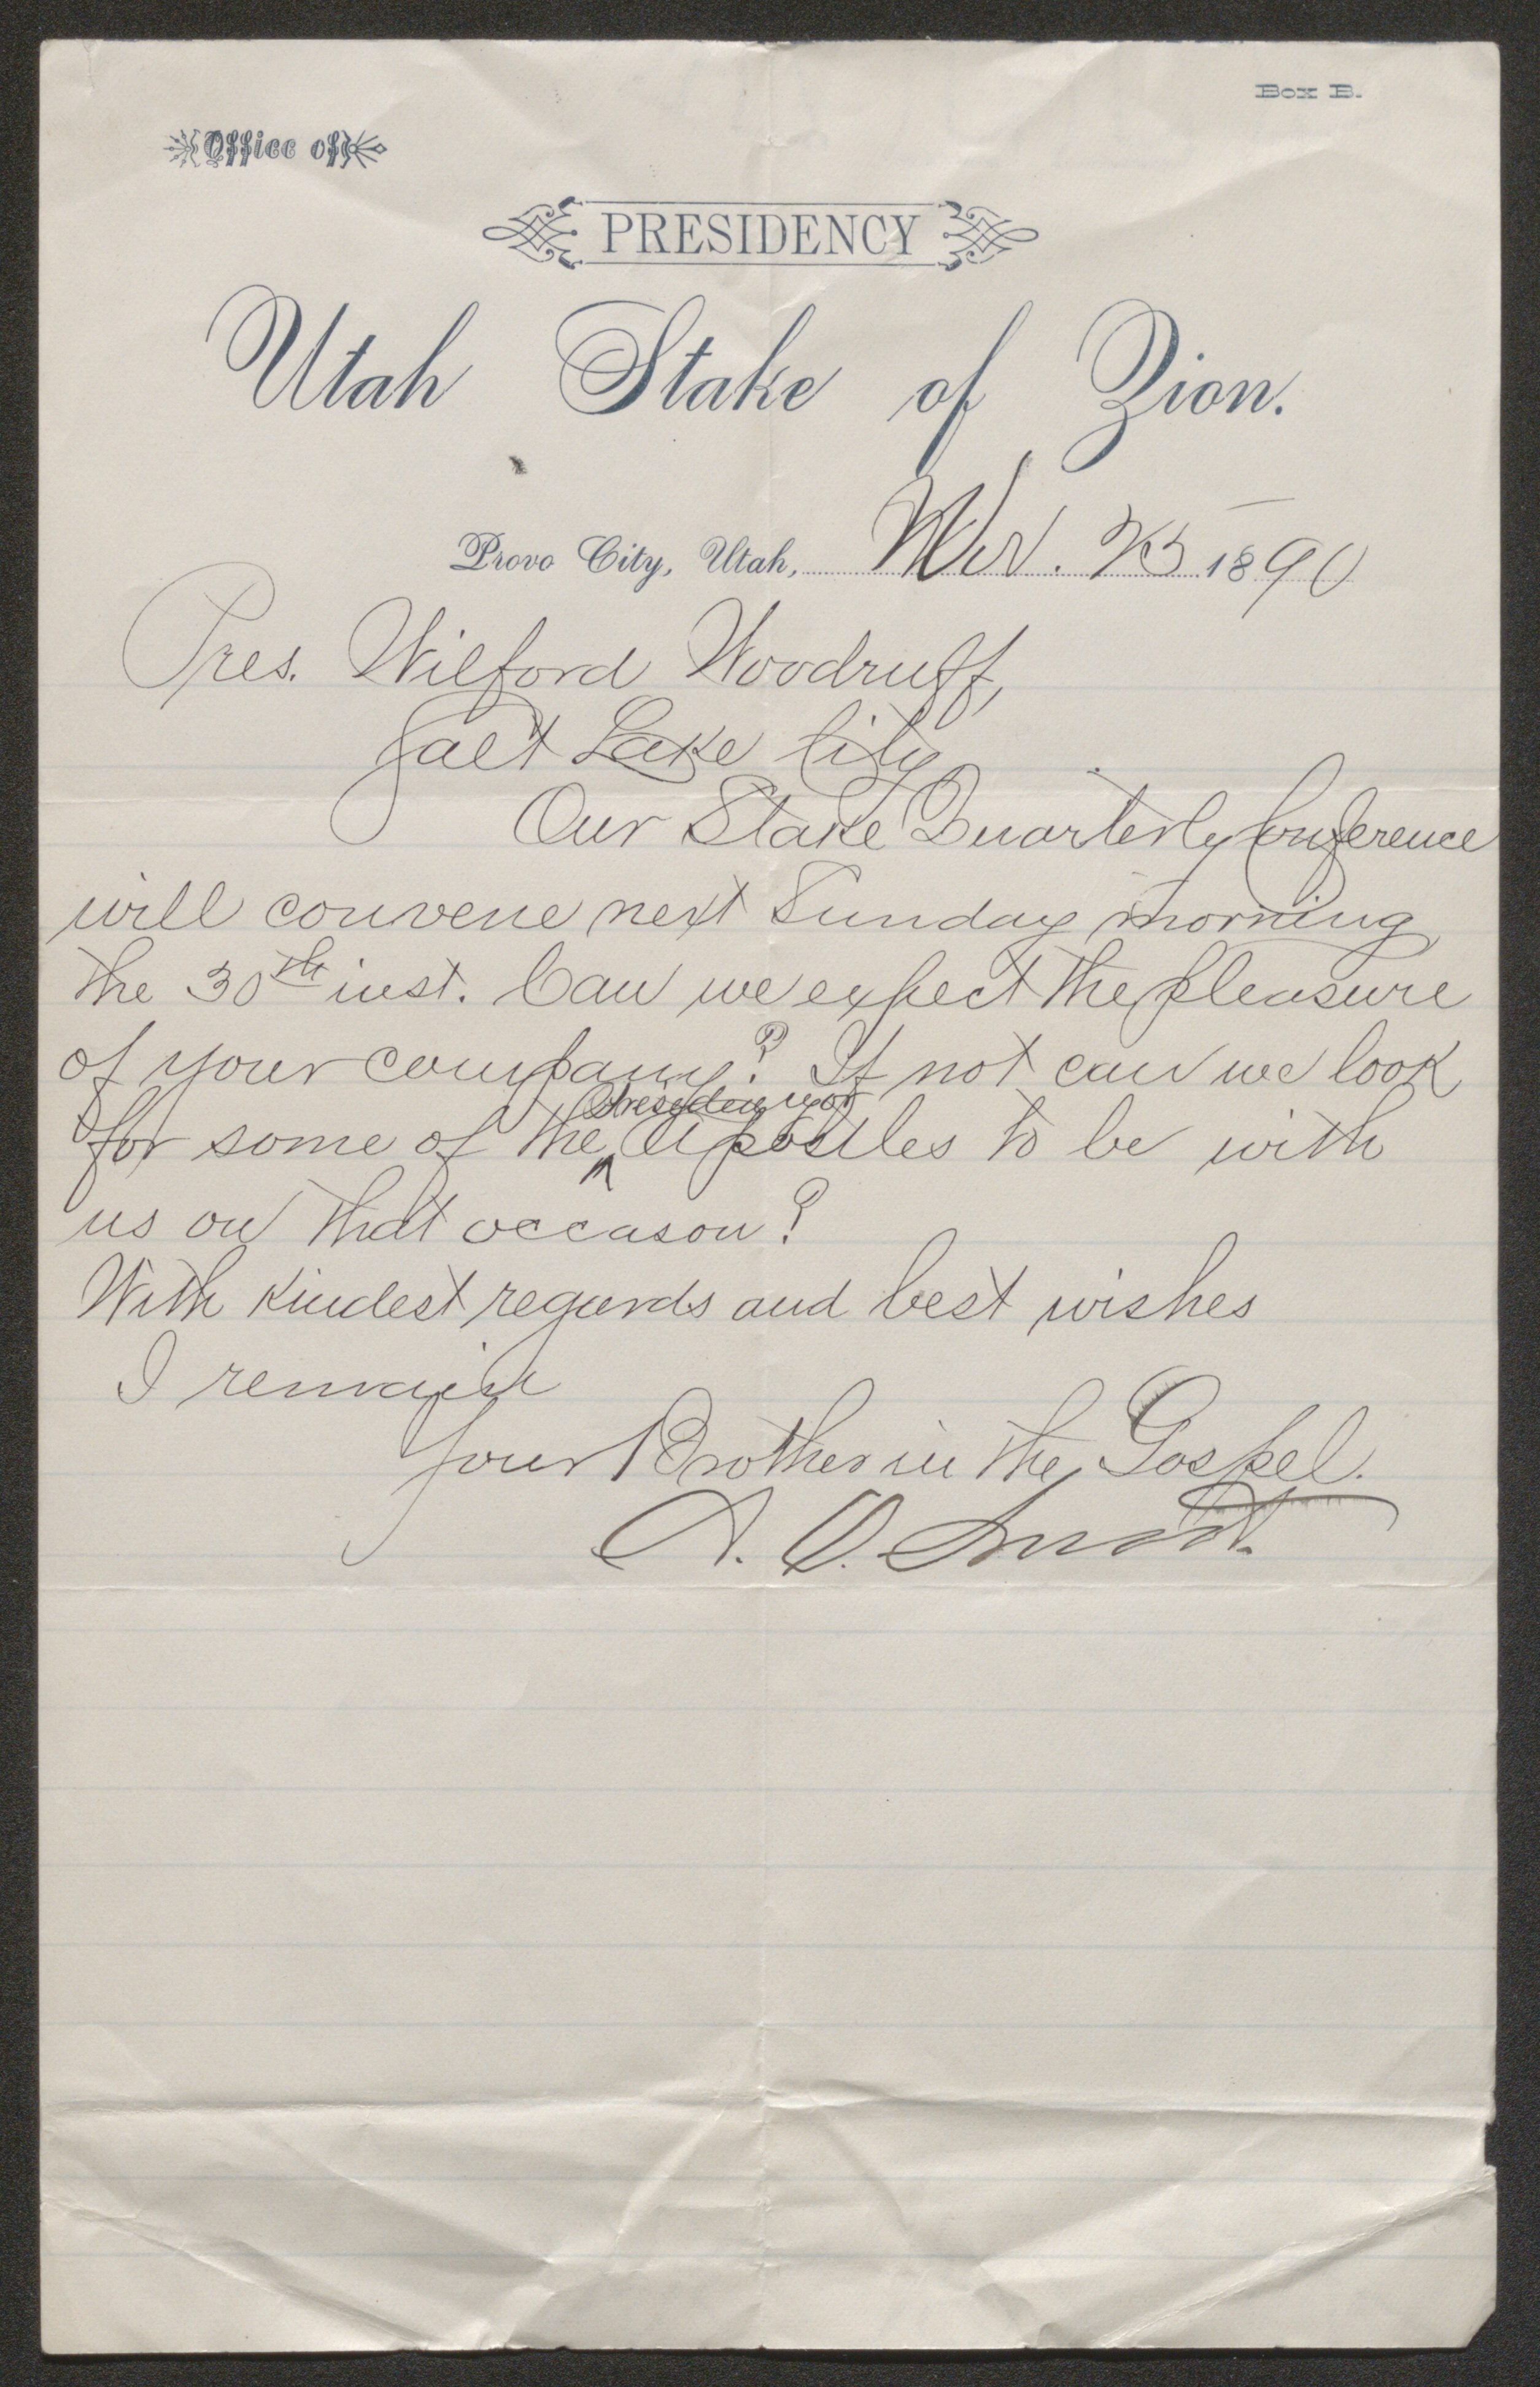 Box B.
Office of
PRESIDENCY
Utah Stake of Zion.
Provo City, Utah, Nov. 25 1890
Pres. Wilford Woodruff,
Salt Lake City
Our Stake Quarterly Conference
will convene next Sunday morning
the 30th inst. Can we expect the pleasure
of your company? If not can we look
Presidency or
for some of the ^ Apostles to be with
us on that occason?
With kindest regards and best wishes
I remain
Your Brother in the Gospel.
A. O. Smoot.